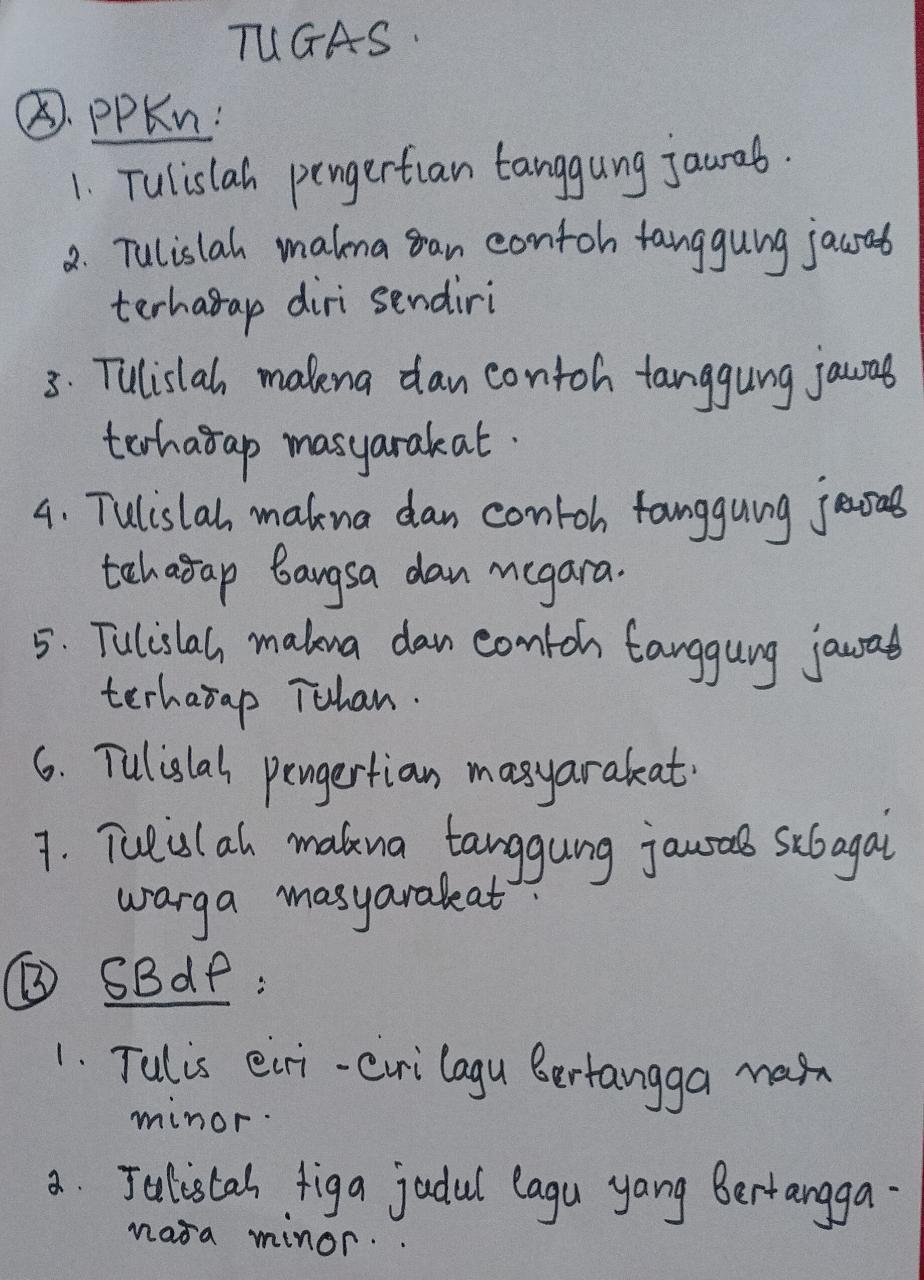 TUGAS.
A. PPKn:
1. Tulislah pengertian tanggung jawab.
2. Tulislah makna dan contoh tanggung jawab
terhadap diri sendiri
3. Tulislah makna dan contoh tanggung jawab
terhadap masyarakat.
4. Tulislah makna dan contoh tanggung jawab
tehadap bangsa dan negara.
5. Tulislah makna dan contoh tanggung jawab
terhadap Tuhan.
6. Tulislah pengertian masyarakat.
7. Tulislah makna tanggung jawab sebagai
warga masyarakat.
B SBdP:
1. Tulis ciri-ciri lagu bertangga nada
minor.
2. Tulislah tiga judul lagu yang bertangga-
nada minor..